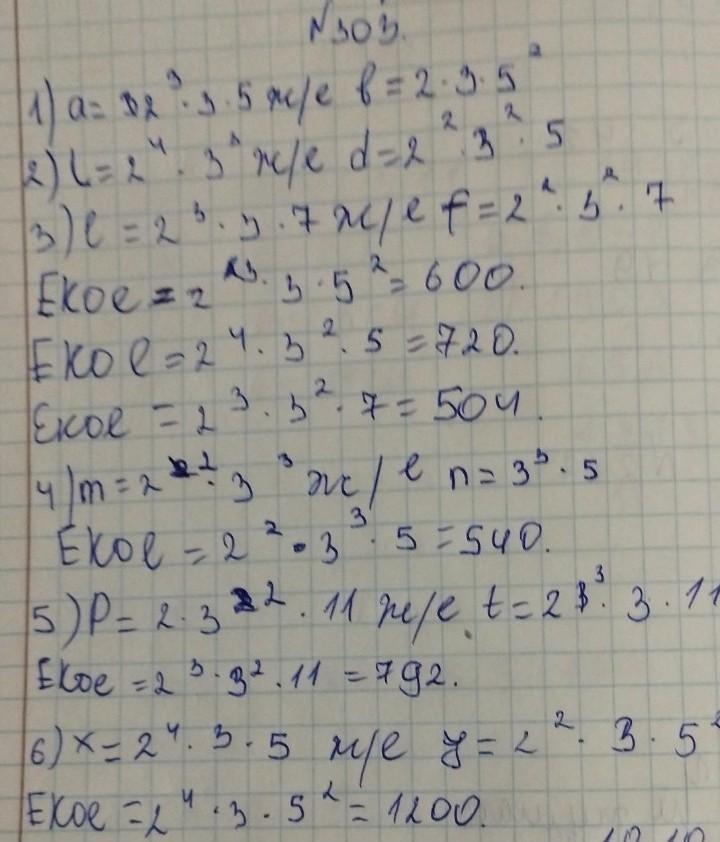 №303.
1) a = 2³ · 3 · 5 ж/е b = 2 · 3 · 5²
2) c = 2⁴ · 3² ж/е d = 2² · 3² · 5
3) e = 2³ · 3 · 7 ж/е f = 2² · 3² · 7
ЕКОЕ = 2³ · 3 · 5² = 600.
ЕКОЕ = 2⁴ · 3² · 5 = 720.
ЕКОЕ = 2³ · 3² · 7 = 504.
4) m = 2² · 3³ ж/е n = 3³ · 5
ЕКОЕ = 2² · 3³ · 5 = 540.
5) P = 2 · 3² · 11 ж/е t = 2³ · 3 · 11
ЕКОЕ = 2³ · 3² · 11 = 792.
6) x = 2⁴ · 3 · 5 ж/е y = 2² · 3 · 5²
ЕКОЕ = 2⁴ · 3 · 5² = 1200.